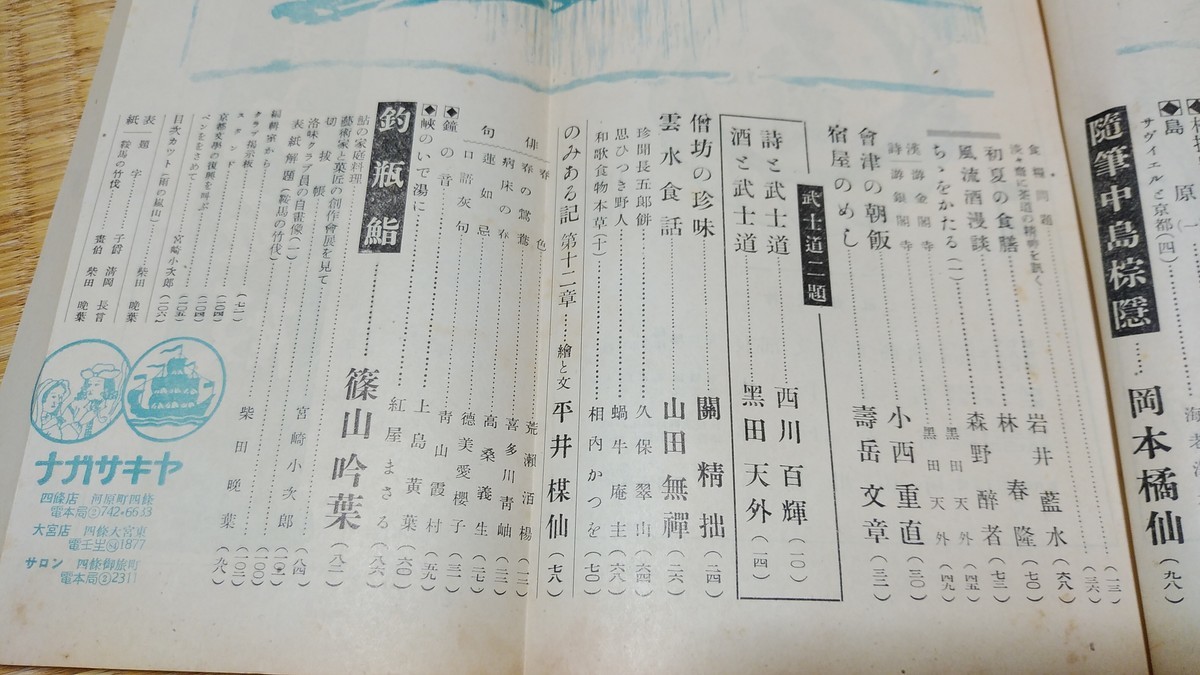 島原(一
サヴィエルと京都(四)
隨筆中島棕隱……岡本橘仙(九八)
食糧問題………(一三)
淡々齋に茶道の精神を訊く………(三六)
初夏の食膳………岩井藍水(六八)
風流酒漫談………林春隆(七〇)
ちゝをかたる(一)………森野醉者(七三)
淺游金閣寺………黒田天外(四五)
詩游銀閣寺………黒田天外(四九)
會津の朝飯………小西重直(三〇)
宿屋のめし………壽岳文章(三一)
武士道二題
詩と武士道………西川百輝(一〇)
酒と武士道………黑田天外(一四)
僧坊の珍味………關精拙(二四)
雲水食話………山田無禪(二六)
珍聞長五郎餅………久保翠山(六四)
思ひつき野人………蝸牛庵主(六八)
和歌食物本草(十)………相内かつを(七〇)
のみある記 第十二章……繪と文 平井楳仙(七八)
俳 春色………荒瀬酒楊(一三)
春の鴛鴦………喜多川靑岫(二三)
病床の春………高桑義生(二七)
句 蓮如忌………德美愛櫻子(三一)
口語灰句………靑山霞村(五九)
◆鐘の音………上島黄葉(六〇)
◆峽のいで湯に………紅屋まさる(八六)
釣瓶鮨………篠山吟葉(八二)
鮎の家庭料理
藝術家と菓匠の創作會展を見て………宮崎小次郎(八四)
切拔帳………(一〇二)
洛味クラブ員の自畫像(一)………(一〇〇)
表紙解題(鞍馬の竹伐)………柴田晩葉(九〇)
編輯室から
クラブ掲示板
スタンド………(七一)
京都文學の復興を叫ぶ………(一〇四)
ペンををさめて………(一〇五)
目次カツト(雨の嵐山)………宮崎小次郎(一〇六)
表題字………柴田晩葉
紙
子爵 淸岡長言
鞍馬の竹伐………畫伯 柴田晩葉
ナガサキヤ
四條店 河原町四條
電本局②742•6633
大宮店 四條大宮東
電壬生84 1877
サロン 四條御旅町
電本局②2311